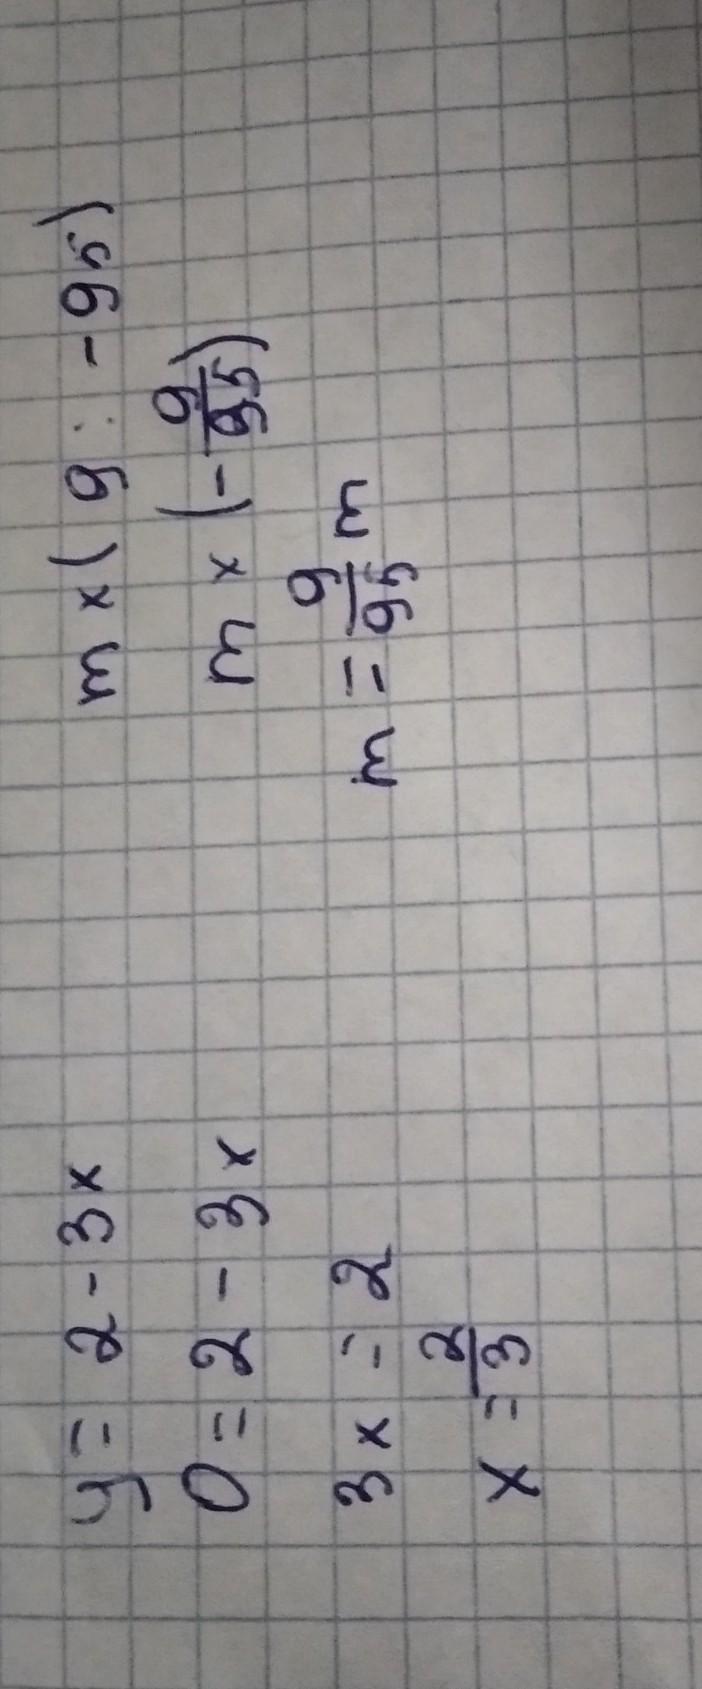 y = 2 - 3x
0 = 2 - 3x
3x = 2
x = 2/3
m × (9 : -95)
m × (- 9/95)
m = 9/95 m